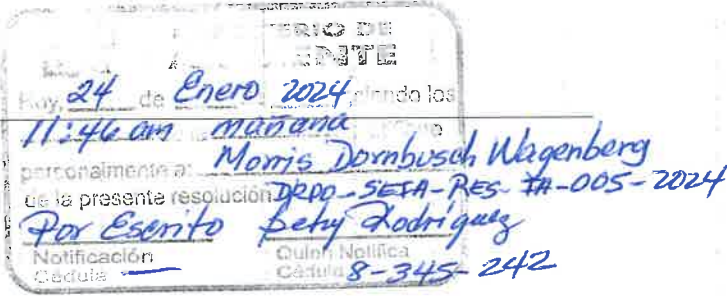 MINISTERIO DE
AMBIENTE
Hoy, 24 de Enero 2024 siendo las
11:46 am mañana
personalmente a: Morris Dornbusch Wagenberg
de la presente resolución DRPO-SEIA-RES-IA-005-2024
Por Escrito Betzy Rodriguez
Notificación Quien Notifica
Cédula Cédula 8-345-242